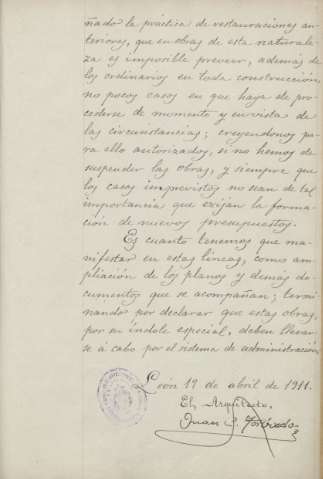 ñado la práctica de restauraciones an-
teriores, que en obras de esta naturale-
za es imposible preveer, además de
los ordinarios en toda construcción,
no pocos casos en que haya de pro-
cederse de momento y en vista de
las circunstancias; creyéndonos pa-
ra ello autorizados, si no hemos de
suspender las obras, y siempre que
los casos imprevistos no sean de tal
importancia que exijan la forma-
ción de nuevos presupuestos.
Es cuanto tenemos que ma-
nifestar en estas líneas, como am-
pliación de los planos y demás do-
cumentos que se acompañan; termi-
nando por declarar que estas obras,
por su índole especial, deben llevar-
se á cabo por el sistema de administración
León 12 de abril de 1911.
El Arquitecto.
Juan C. Torbado